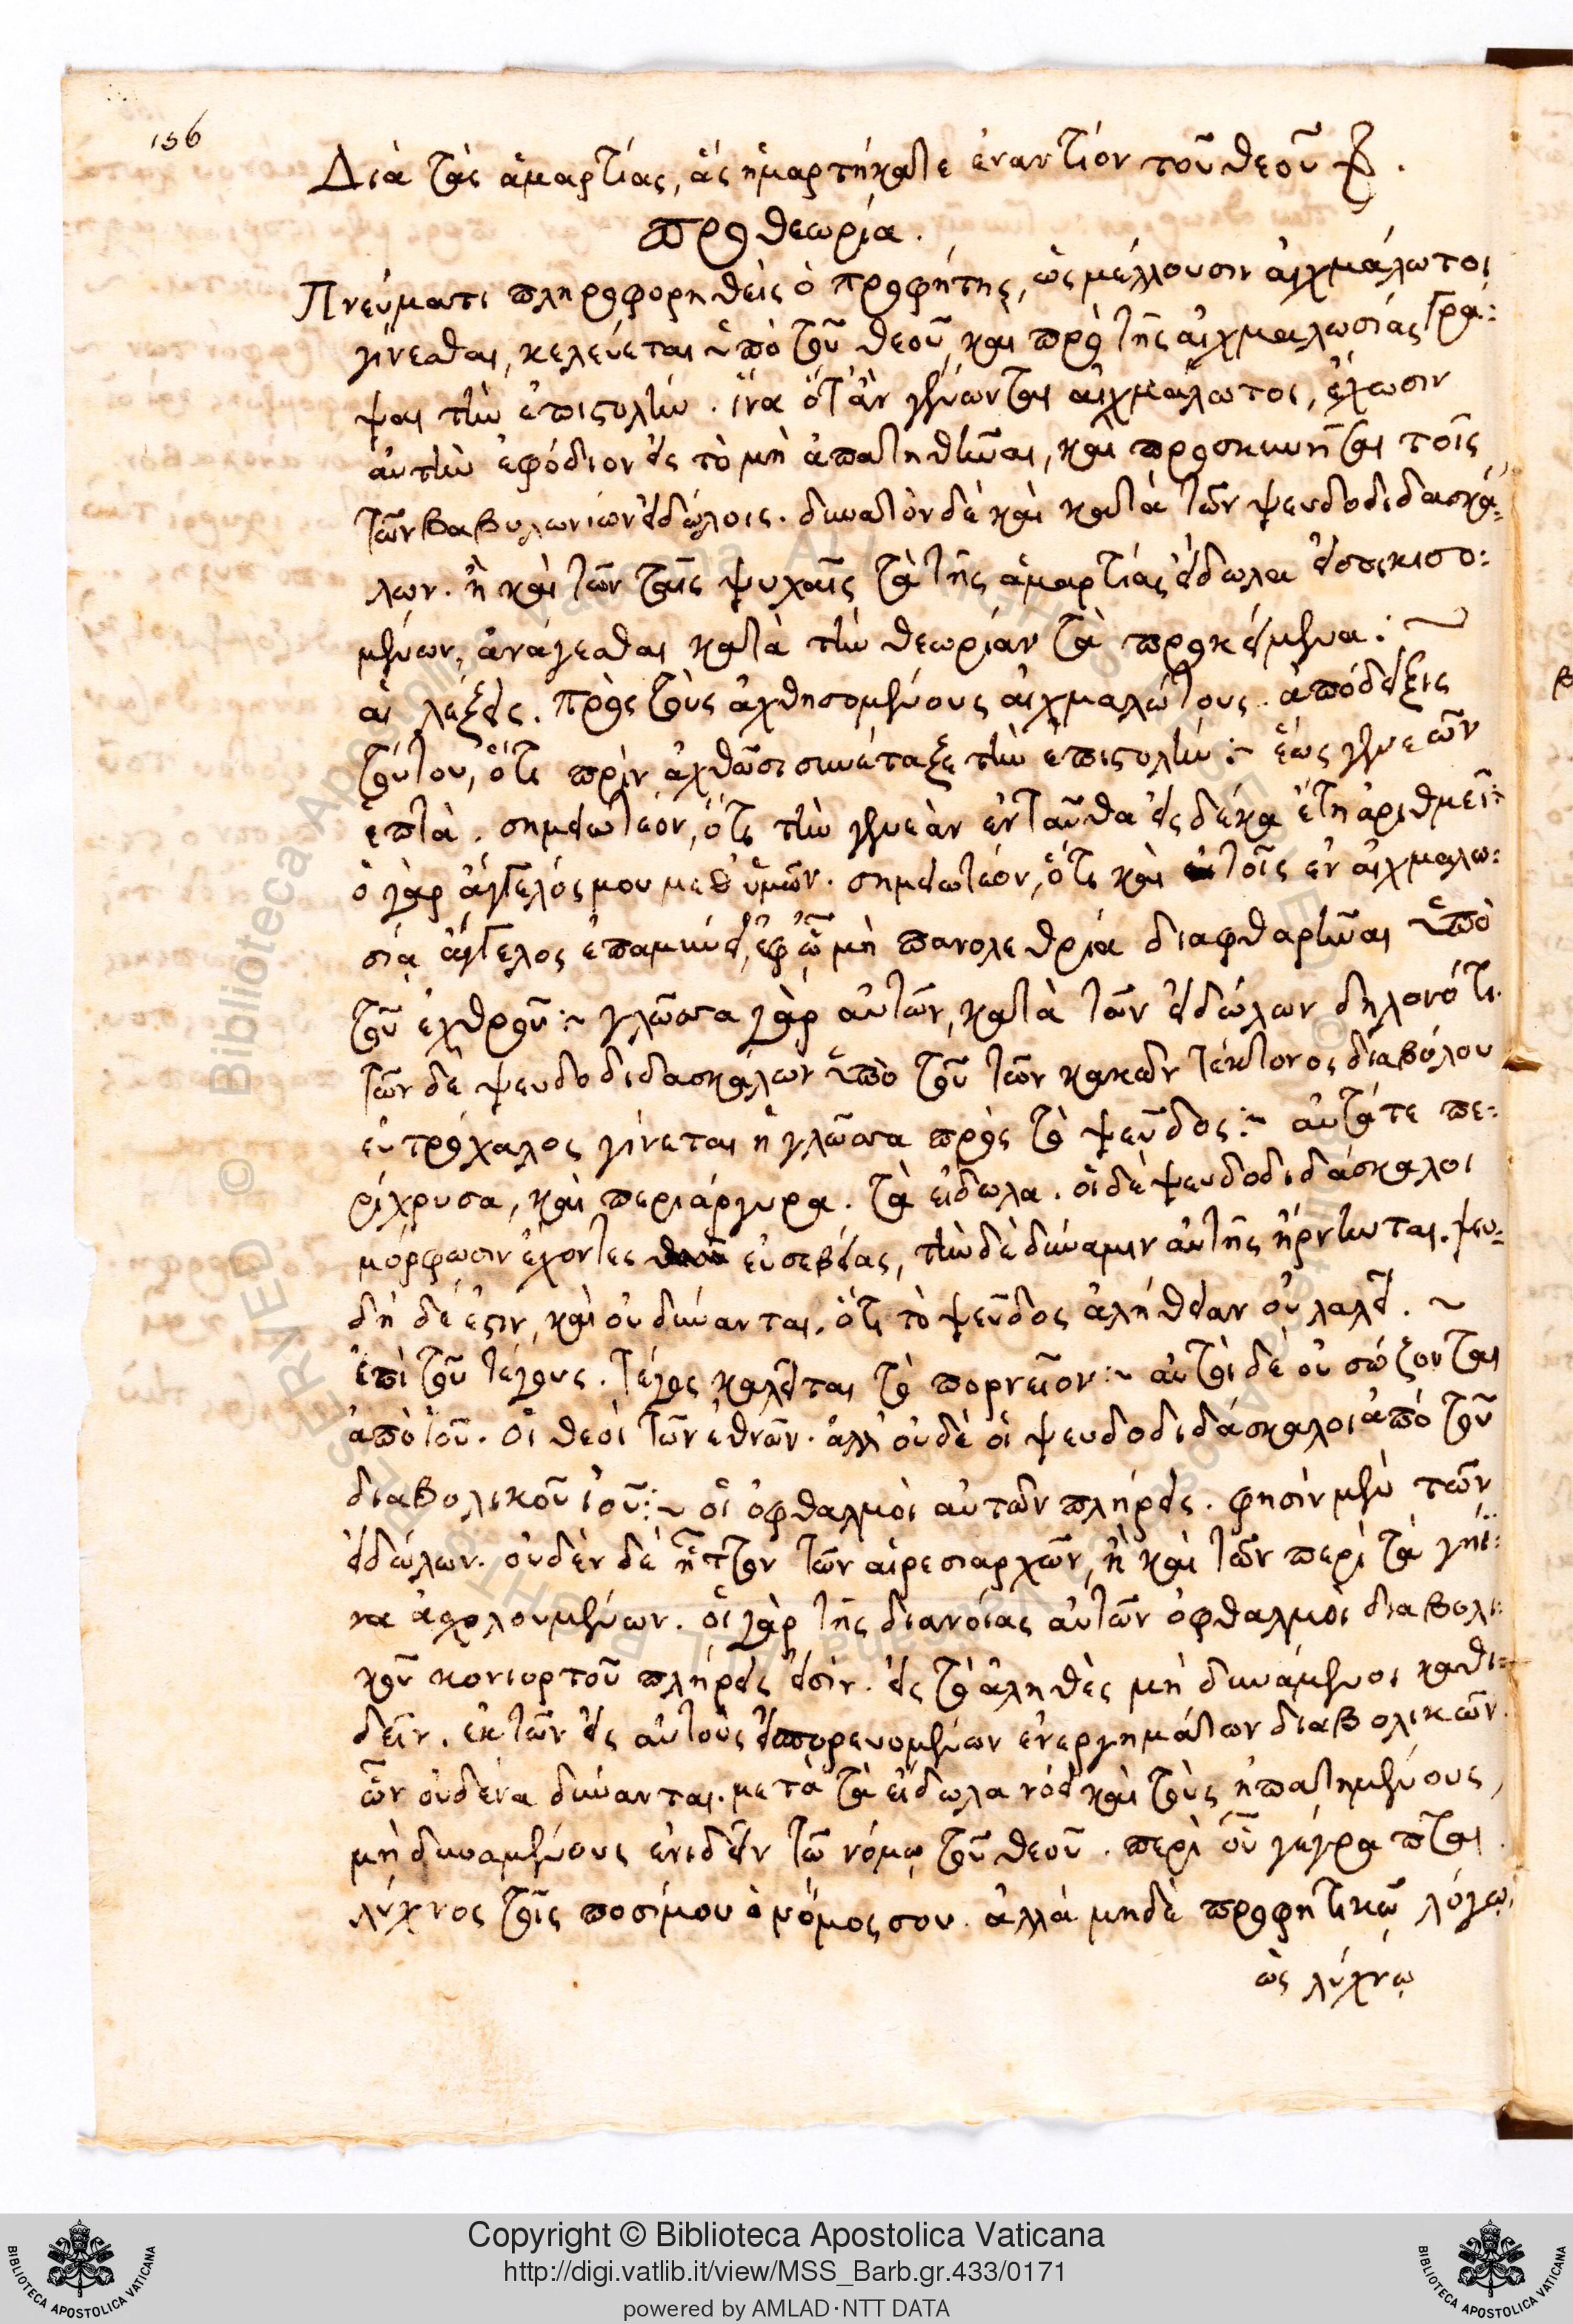 156
Διὰ τὰς ἁμαρτίας, ἃς ἡμαρτήκατε ἐναντίον τοῦ θεοῦ
προθεωρία.
Πνεύματι πληροφορηθεὶς ὁ προφήτης, ὡς μέλλουσιν αἰχμάλωτοι
γίνεσθαι, κελεύεται ὑπὸ τοῦ θεοῦ, καὶ πρὸ τῆς αἰχμαλωσίας γρά:
ψαι τὴν ἐπιστολήν. ἵνα ὅτ' ἂν γένωνται αἰχμάλωτοι, ἔχωσιν
αὐτὴν ἐφόδιον εἰς τὸ μὴ ἀπατηθῆναι, καὶ προσκυνῆσαι τοῖς
τῶν βαβυλωνίων εἰδώλοις. δυνατὸν δὲ καὶ κατὰ τῶν ψευδοδιδασκά:
λων. ἢ καὶ τῶν ταῖς ψυχαῖς τὰ τῆς ἁμαρτίας εἴδωλα εἰσοικισο:
μένων, ἀνάγεσθαι κατὰ τὴν θεωρίαν τὰ προκείμενα: ~
αἱ λέξεις. πρὸς τοὺς ἀχθησομένους αἰχμαλώτους. ἀπόδειξις
τούτου, ὅτι πρὶν ἀχθῶσι συνέταξε τὴν ἐπιστολήν: ~ ἕως γενεῶν
ἑπτά. σημειωτέον, ὅτι τὴν γενεὰν ἐνταῦθα εἰς δέκα ἔτη ἀριθμεῖ:~
ὁ γὰρ ἄγγελός μου μεθ' ὑμῶν. σημειωτέον, ὅτι καὶ τοῖς ἐν αἰχμαλω:
σίᾳ ἄγγελος ἐπαμύνει, ἐφ' ᾧ μὴ πανολεθρίᾳ διαφθαρῆναι ὑπὸ
τοῦ ἐχθροῦ: ~ γλῶσσα γὰρ αὐτῶν, κατὰ τῶν εἰδώλων δηλονότι.
τῶν δὲ ψευδοδιδασκάλων ὑπὸ τοῦ τῶν κακῶν τέκτονος διαβόλου
εὐτρόχαλος γίνεται ἡ γλῶσσα πρὸς τὸ ψεῦδος: ~ αὐτά τε πε:
ρίχρυσα, καὶ περιάργυρα. τὰ εἴδωλα. οἱ δὲ ψευδοδιδάσκαλοι
μόρφωσιν ἔχοντες εὐσεβείας, τὴν δὲ δύναμιν αὐτῆς ἤρνηνται. ψευ:
δῆ δέ ἐστιν, καὶ οὐ δύνανται, ὅτι τὸ ψεῦδος ἀλήθειαν οὐ λαλεῖ. ~
ἐπὶ τοῦ τέγους. τέγος καλεῖται τὸ πορνεῖον: ~ αὐτοὶ δὲ οὐ σώζονται
ἀπὸ ἰοῦ. οἱ θεοὶ τῶν ἐθνῶν. ἀλλ' οὐδὲ οἱ ψευδοδιδάσκαλοι ἀπὸ τοῦ
διαβολικοῦ ἰοῦ: ~ οἱ ὀφθαλμοὶ αὐτῶν πλήρεις. φησὶν μὲν τῶν
εἰδώλων. οὐδὲν δὲ ἧττον τῶν αἱρεσιαρχῶν, ἢ καὶ τῶν περὶ τὰ γήϊ:
να ἀσχολουμένων. οἱ γὰρ τῆς διανοίας αὐτῶν ὀφθαλμοὶ διαβολι:
κοῦ κονιορτοῦ πλήρεις εἰσὶν. εἰς τὸ ἀληθὲς μὴ δυνάμενοι κατι:
δεῖν. ἐκ τῶν εἰς αὐτοὺς εἰσπορευομένων ἐνεργημάτων διαβολικῶν.
ὧν οὐδένα δύνανται. μετὰ τὰ εἴδωλα νόει καὶ τοὺς ἠπατημένους,
μὴ δυναμένους ἐνιδεῖν τῷ νόμῳ τοῦ θεοῦ. περὶ οὗ γέγραπται.
λύχνος τοῖς ποσί μου ὁ νόμος σου. ἀλλὰ μηδὲ προφητικῷ λόγῳ,
ὡς λύχνῳ
Copyright © Biblioteca Apostolica Vaticana
http://digi.vatlib.it/view/MSS_Barb.gr.433/0171
powered by AMLAD·NTT DATA